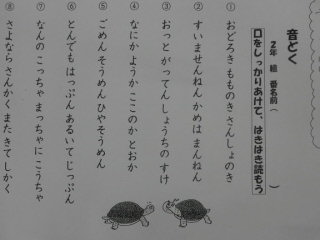 音どく
2年 組 番名前( )
口をしっかりあけて、はきはき読もう
① おどろき もものき さんしょのき
② すいませんねん かめは まんねん
③ おっと がってん しょうちの すけ
④ なにか ようか ここのか とおか
⑤ ごめん そうめん ひやそうめん
⑥ とんでも はっぷん あるいて じっぷん
⑦ なんの こっちゃ まっちゃに こうちゃ
⑧ さよなら さんかく また きて しかく